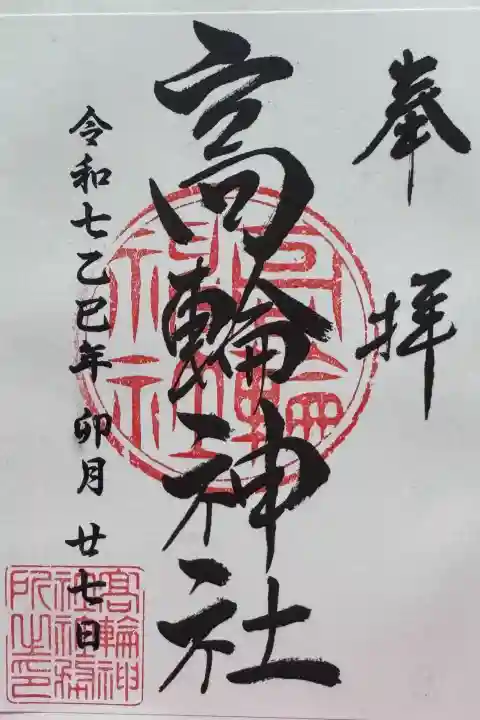 奉拝
高輪神社
令和七乙巳年 卯月 廿七日
高輪神社
高輪神
社社務
所之印